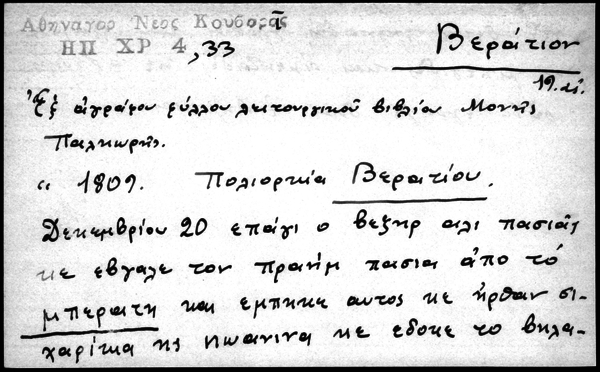 Αθηναγορ Νεος Κουβαρᾶς
ΗΠ ΧΡ 4,33
Βεράτιον
19.αἰ.
Ἐξ ἀγράφου φύλλου λειτουργικοῦ βιβλίου Μονῆς
Παλιωρῆς.
" 1809. Πολιορκία Βερατίου.
Δεκεμβρίου 20 επάγι ο βεζηρ αλι πασιᾶς
κε εβγαλε τον πραημ πασια ἀπο τό
μπερατη και εμπηκε αυτος κε ἠρθαν σι-
χαρίκια ης ηωανινα κε εδοκε το βηλα-